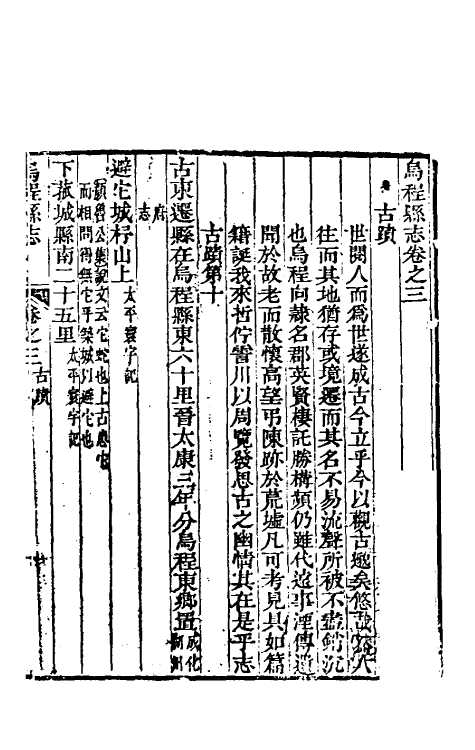 烏程縣志卷之三
古蹟
世閱人而爲世遂成古今立乎今以觀古邈矣悠哉
往而其地猶存或境遷而其名不易流聲所被不盡銷沉
也烏程向隸名郡英賢棲託勝構頻仍雖代遠事湮傳遺
聞於故老而散懷高望弔陳跡於荒墟凡可考見具如篇
籍誕我來哲俯霅川以周覽發思古之幽情其在是乎志
古蹟第十
古東遷縣在烏程縣東六十里晉太康三年分烏程東鄉置成化湖州
府志
避它城杼山上太平寰字記
顏魯公集記文云它蛇也上古患它
而相問得無它乎築城以避它也
下菰城縣南二十五里太平寰字記
烏程縣志
卷之三古蹟